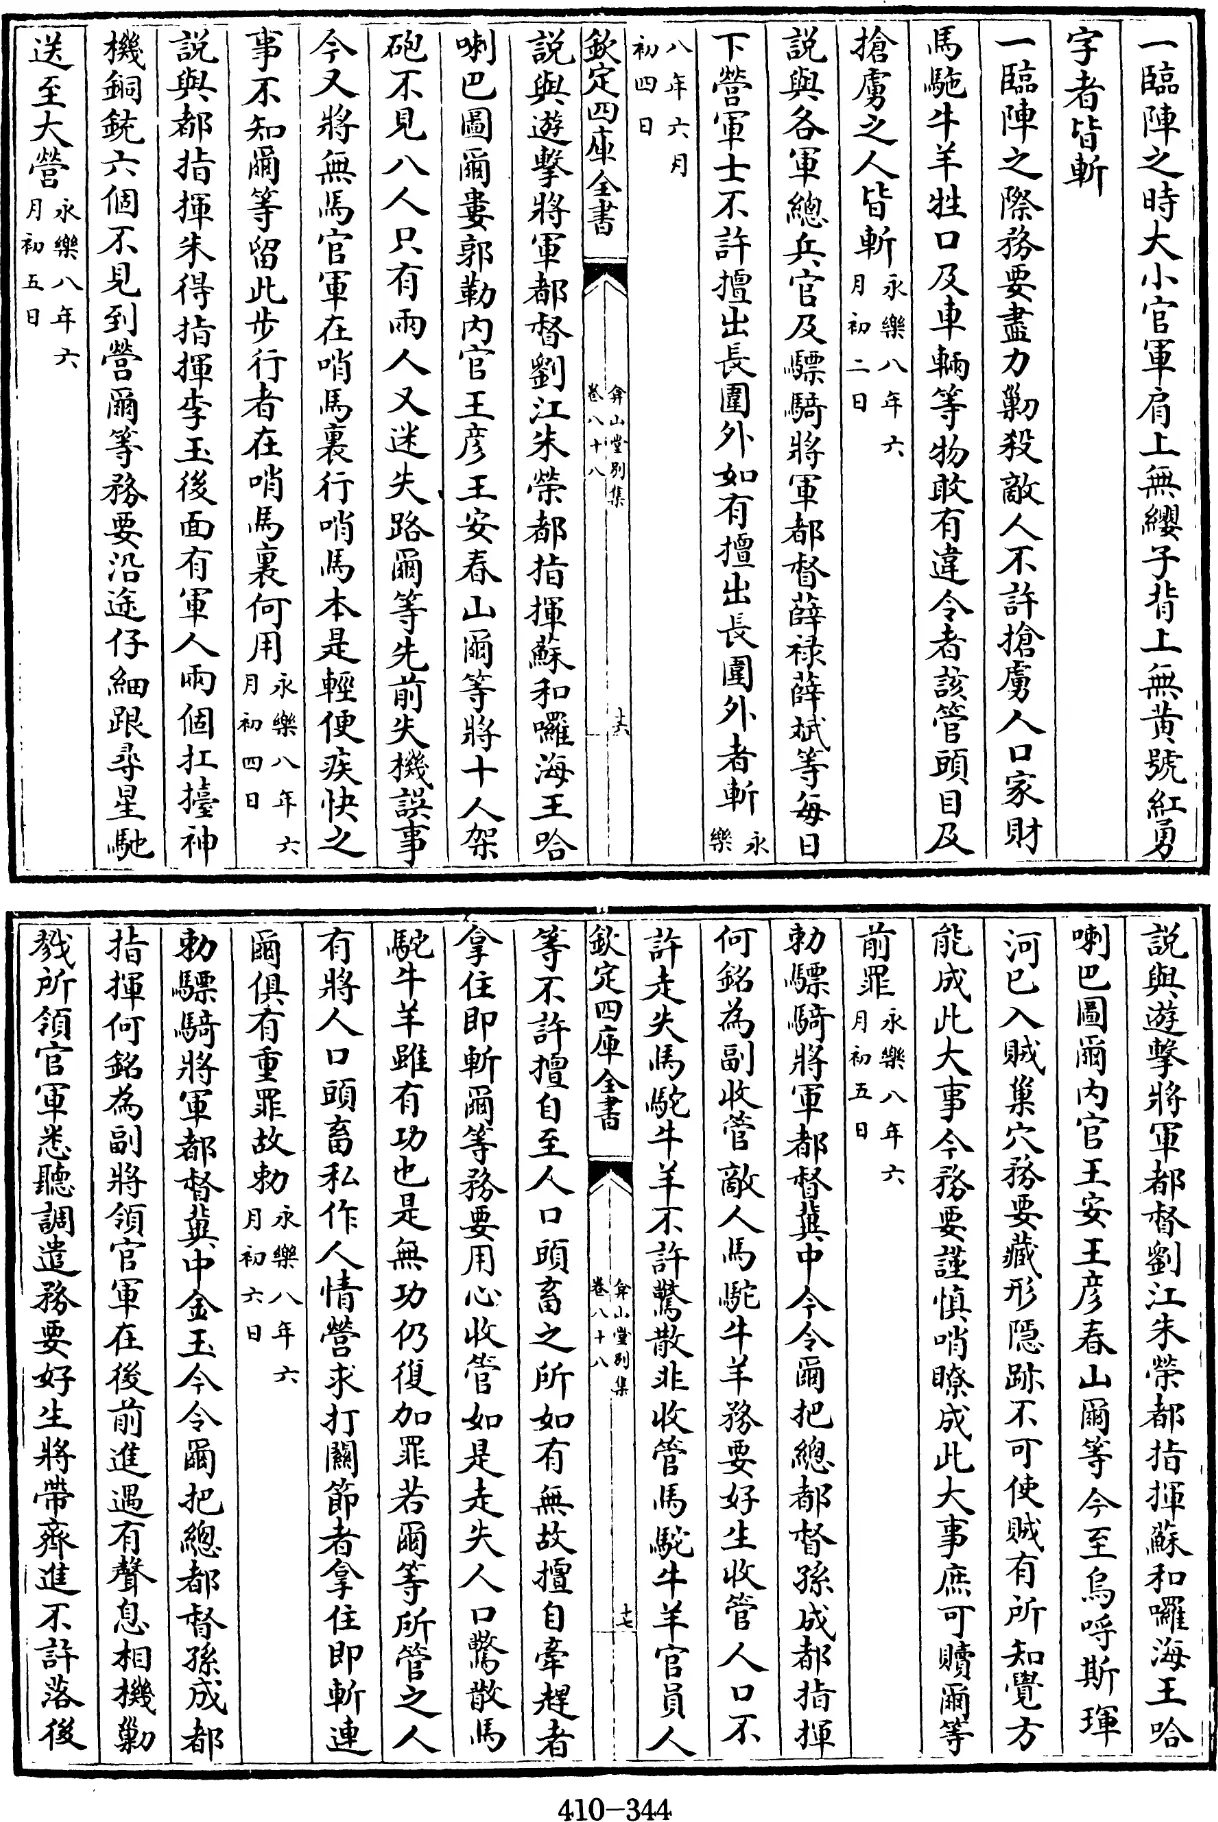 一臨陣之時大小官軍肩上無纓子背上無黄號紅勇
字者皆斬
一臨陣之際務要盡力勦殺敵人不許搶虜人口家財
馬駞牛羊牲口及車輛等物敢有違令者該管頭目及
搶虜之人皆斬永樂八年六月初二日
説與各軍總兵官及驃騎將軍都督薛禄薛斌等每日
下營軍士不許擅出長圍外如有擅出長圍外者斬永樂
八年六月初四日
欽定四庫全書
弇山堂别集
卷八十八
十六
説與遊擊將軍都督劉江朱榮都指揮蘇和囉海王哈
喇巴圖爾婁郭勒内官王彦王安春山爾等將十人架
砲不見八人只有兩人又迷失路爾等先前失機誤事
今又將無馬官軍在哨馬裏行哨馬本是輕便疾快之
事不知爾等留此步行者在哨馬裏何用永樂八年六月初四日
説與都指揮朱得指揮李玉後面有軍人兩個扛擡神
機銅銃六個不見到營爾等務要沿途仔細跟尋星馳
送至大營永樂八年六月初五日
説與遊擊將軍都督劉江朱榮都指揮蘇和囉海王哈
喇巴圖爾内官王安王彦春山爾等今至烏呼斯琿
河已入賊巢穴務要藏形隱跡不可使賊有所知覺方
能成此大事今務要謹慎哨瞭成此大事庶可贖爾等
前罪永樂八年六月初五日
勅驃騎將軍都督冀中今令爾把總都督孫成都指揮
何銘為副收管敵人馬駝牛羊務要好生收管人口不
許走失馬駝牛羊不許驚散非收管馬駝牛羊官員人
欽定四庫全書
弇山堂别集
卷八十八
十七
等不許擅自至人口頭畜之所如有無故擅自牽趕者
拿住即斬爾等務要用心收管如是走失人口驚散馬
駝牛羊雖有功也是無功仍復加罪若爾等所管之人
有將人口頭畜私作人情營求打關節者拿住即斬連
爾俱有重罪故勅永樂八年六月初六日
勅驃騎將軍都督冀中金玉今令爾把總都督孫成都
指揮何銘為副將領官軍在後前進遇有聲息相機勦
戮所領官軍悉聽調遣務要好生將帶齊進不許落後
410-344